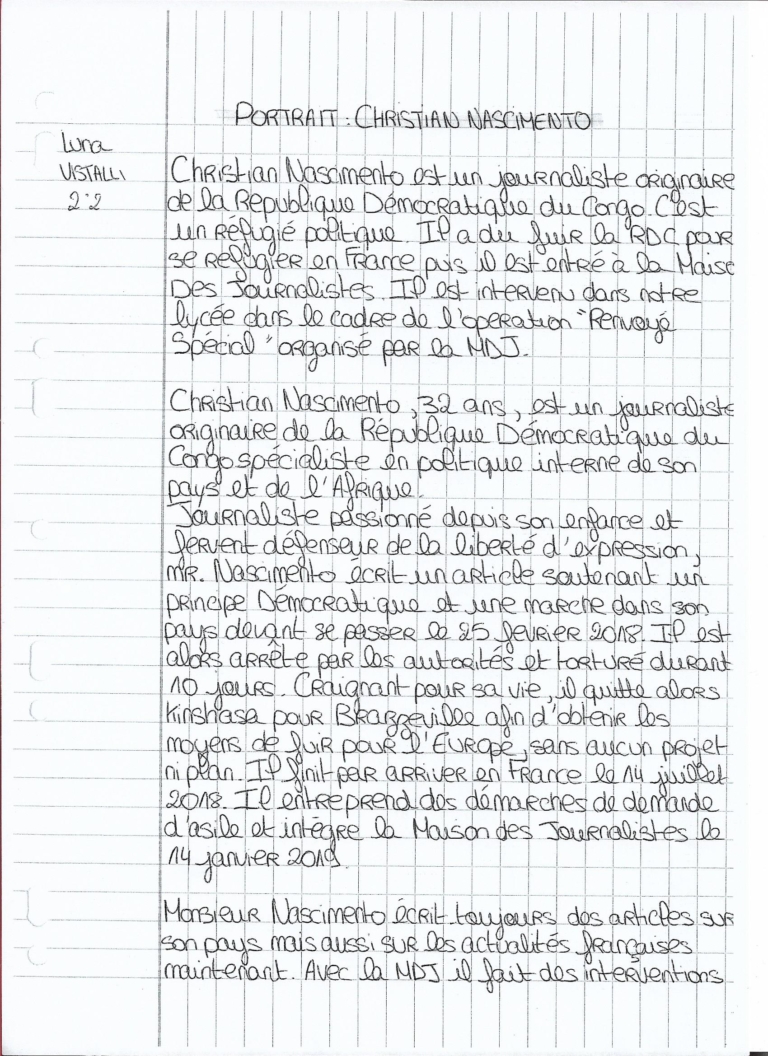 PORTRAIT : CHRISTIAN NASCIMENTO
Luna
VISTALLI
2°2
Christian Nascimento est un journaliste originaire
de la République Démocratique du Congo. C'est
un Réfugié politique. Il a du fuir la RDC pour
se réfugier en France puis il est entré à la Maiso
Des Journalistes. Il est intervenu dans notre
lycée dans le cadre de l'operation "Renvoyé
Spécial" organisé par la MDJ.
Christian Nascimento, 32 ans, est un journaliste
originaire de la République Démocratique du
Congo spécialiste en politique interne de son
pays et de l'Afrique.
Journaliste passionné depuis son enfance et
fervent défenseur de la liberté d'expression,
mr. Nascimento écrit un article soutenant un
principe Démocratique et une marche dans son
pays devant se passer le 25 fevrier 2018. Il est
alors arrêté par les autorités et torturé durant
10 jours. Craignant pour sa vie, il quitte alors
Kinshasa pour Brazzeville afin d'obtenir les
moyens de fuir pour l'Europe, sans aucun projet
ni plan. Il finit par arriver en France le 14 juillet
2018. Il entreprend des démarches de demande
d'asile et intègre la Maison des Journalistes le
14 janvier 2019.
Monsieur Nascimento écrit toujours des articles sur
son pays mais aussi sur les actualités françaises
maintenant. Avec la MDJ il fait des interventions